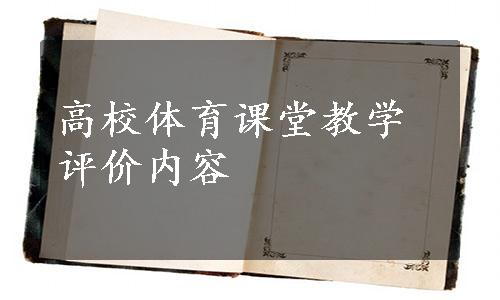 高校体育课堂教学
评价内容